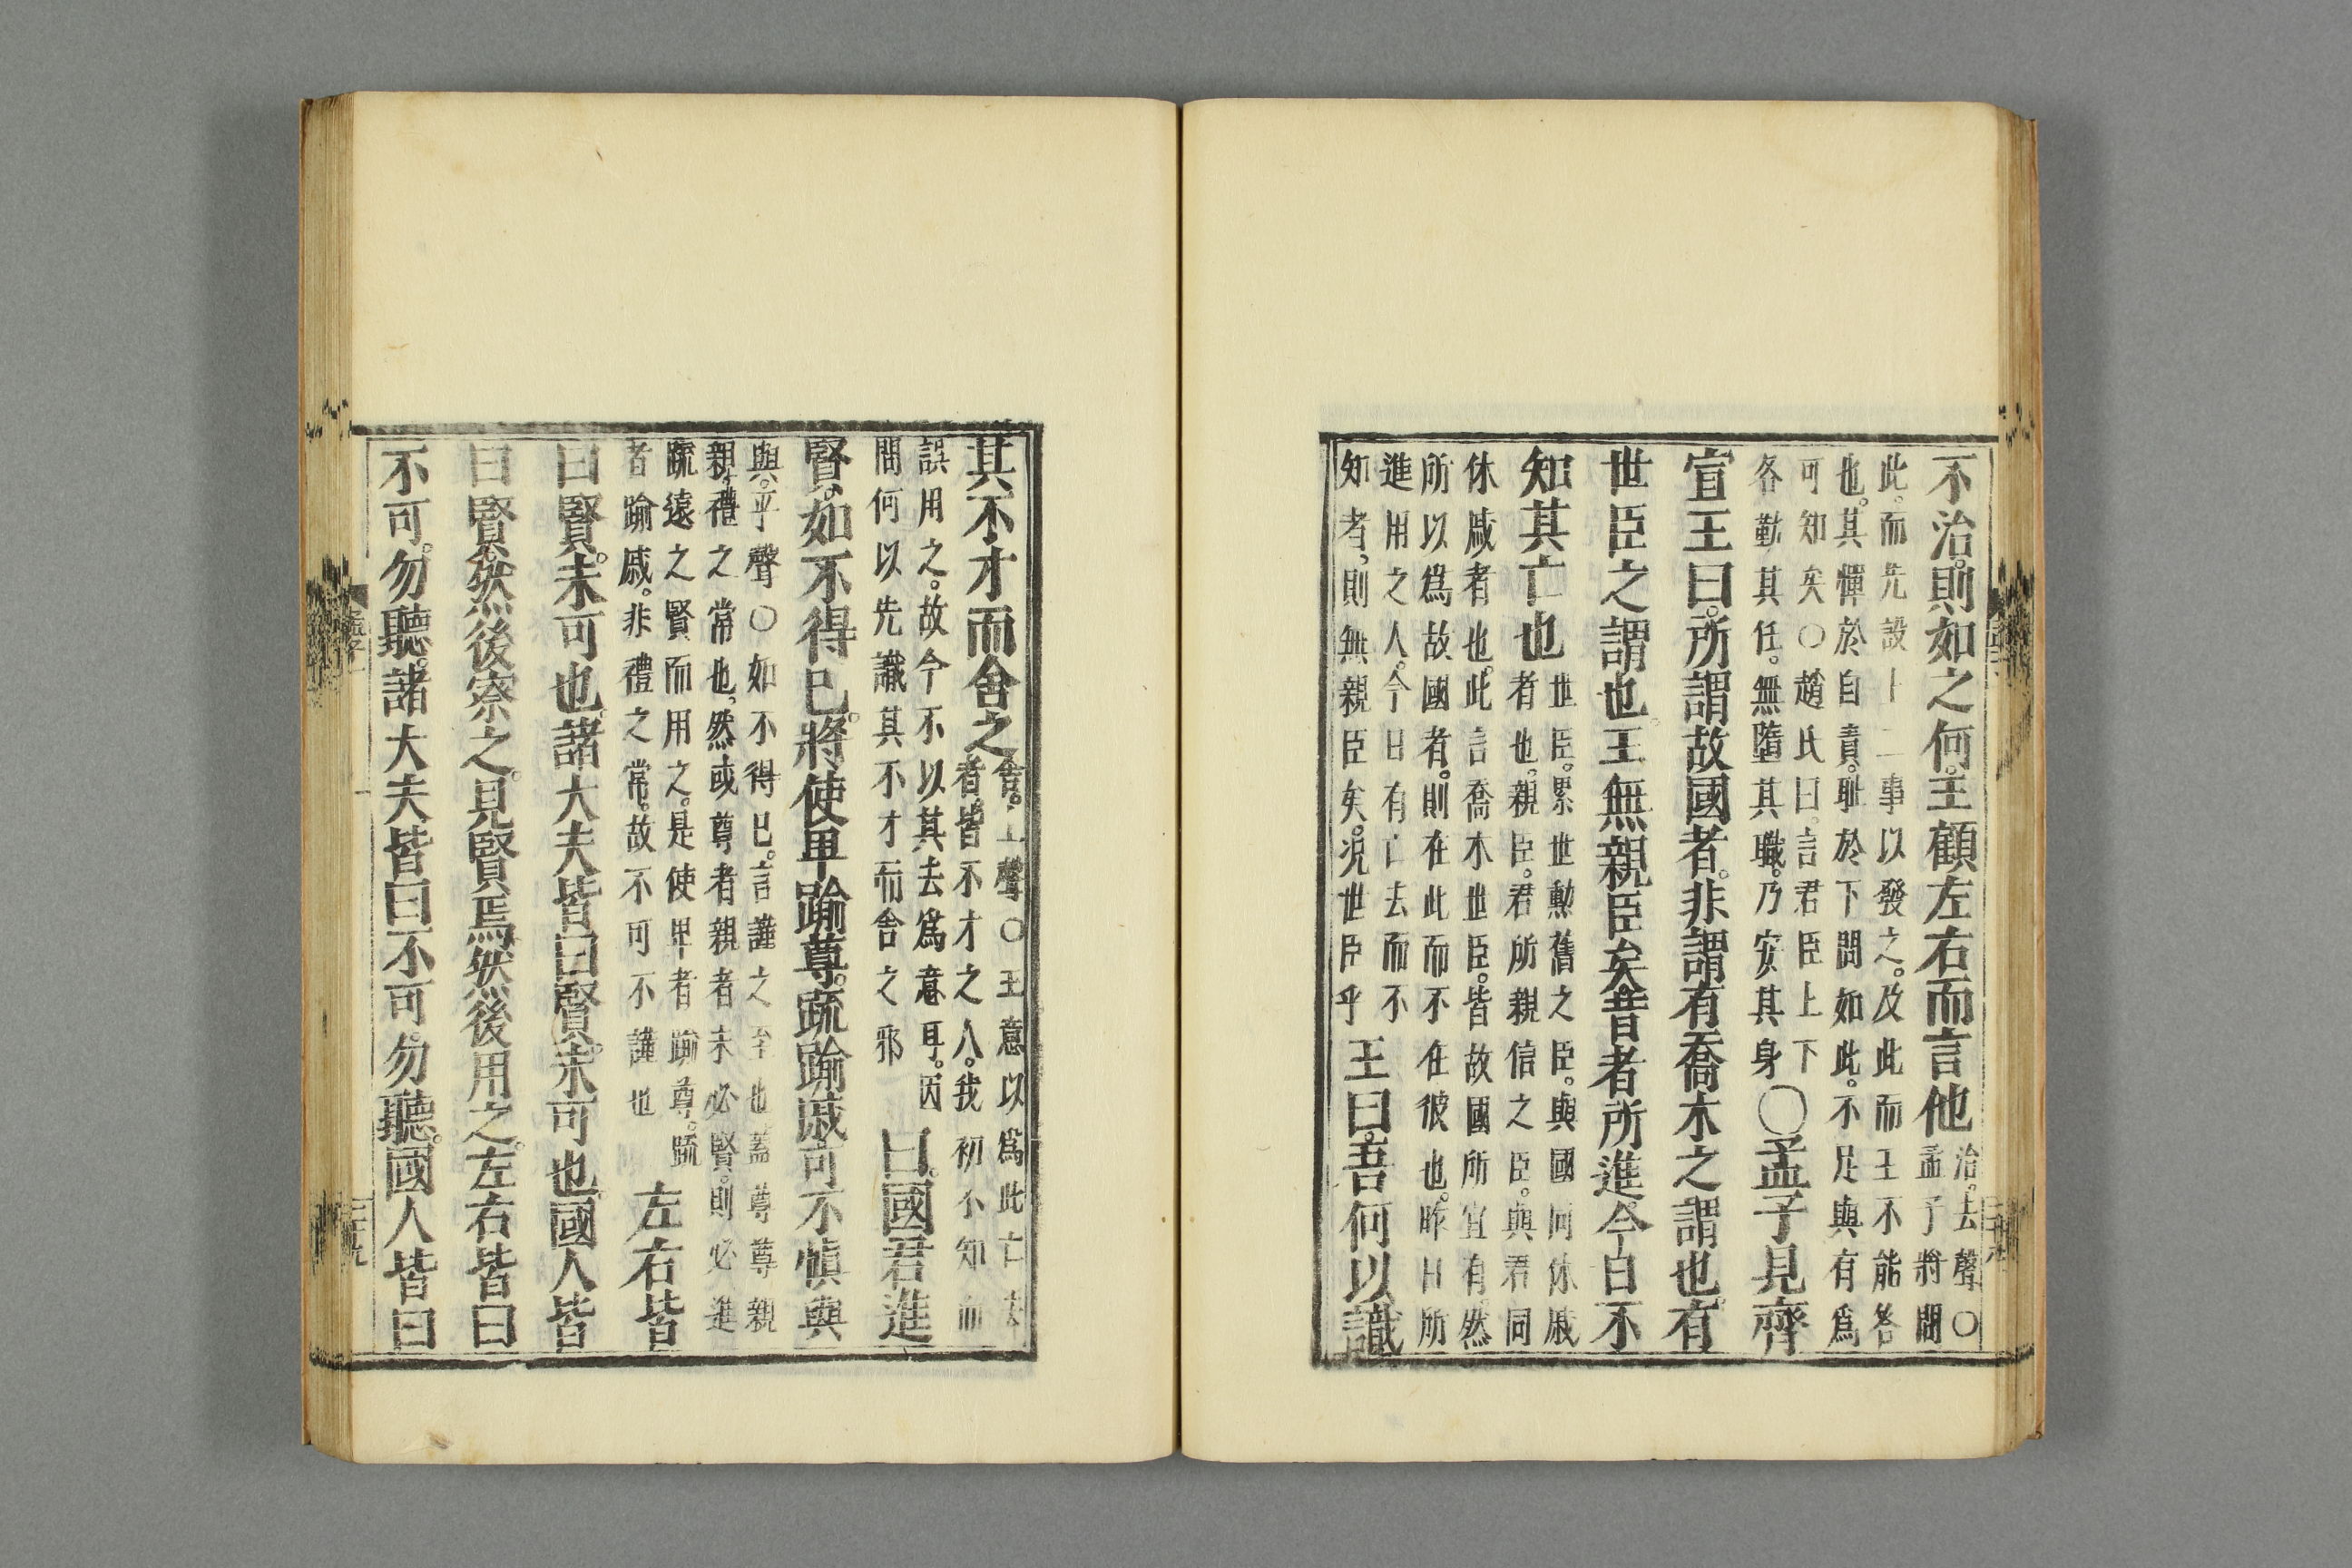 不治。則如之何。王顧左右而言他治。去聲○
孟子將問
此。而先設上二事以發之。及此而王不能答
也。其憚於自責。恥於下問如此。不足與有爲
可知矣○趙氏曰。言君臣上下
各勤其任。無墮其職。乃安其身○孟子見齊
宣王曰。所謂故國者。非謂有喬木之謂也。有
世臣之謂也。王無親臣矣。昔者所進。今日不
知其亡也世臣。累世勳舊之臣。與國同休戚
者也。親臣。君所親信之臣。與君同
休戚者也。此言喬木世臣。皆故國所宜有。然
所以爲故國者。則在此而不在彼也。昨日所
進用之人。今日有亡去而不
知者。則無親臣矣。況世臣乎王曰。吾何以識
其不才而舍之舍。上聲○王意以爲此亡去
者。皆不才之人。我初不知而
誤用之。故今不以其去爲意耳。因
問何以先識其不才而舍之邪曰。國君進
賢。如不得已。將使卑踰尊。疏踰戚。可不愼與
與。平聲○如不得已。言謹之至也。蓋尊尊親
親。禮之常也。然或尊者親者未必賢。則必進
疏遠之賢而用之。是使卑者踰尊。疏
者踰戚。非禮之常。故不可不謹也左右皆
曰賢。未可也。諸大夫皆曰賢。未可也。國人皆
曰賢。然後察之。見賢焉。然後用之。左右皆曰
不可。勿聽。諸大夫皆曰不可。勿聽。國人皆曰